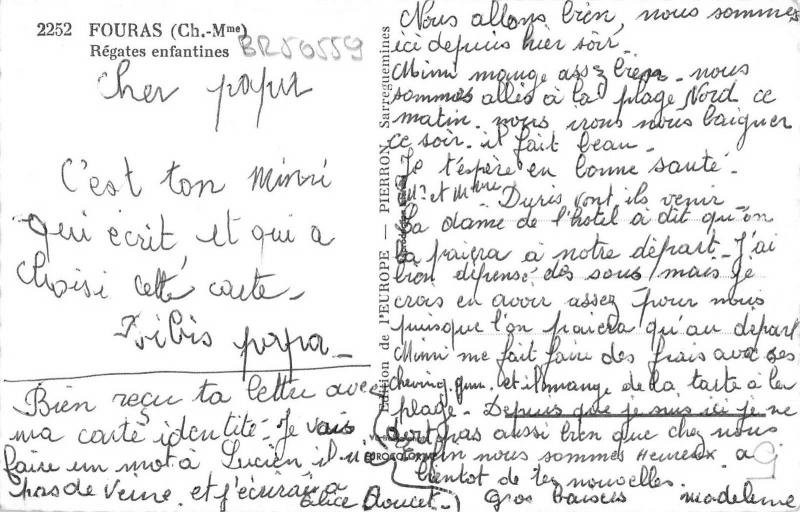 2252 FOURAS (Ch.-Mme)
Régates enfantines
BR50559
Cher papa
C'est ton Mimi
qui écrit, et qui a
choisi cette carte -
papa -
Bien reçu ta lettre avec
ma carte identité - Je vais
faire un mot à Lucien, il n'a
pas de veine. et j'écrirai à
Alice Doucet -
Edition de l'EUROPE — PIERRON Sarreguemines
Nous allons bien, nous sommes
ici depuis hier soir.
Mimi mange assez bien - nous
sommes allés à la plage Nord ce
matin. nous irons nous baigner
ce soir. il fait beau -
Je t'espère en bonne santé -
Mr et Mme Duris vont ils venir -
La dame de l'hotel a dit qu'on
la paiera à notre départ - J'ai
bien dépensé des sous mais je
crois en avoir assez pour nous
puisque l'on paiera qu'au départ
Mimi me fait faire des frais avec ses
chewing-gum. et il mange de la tarte à la
plage - Depuis que je suis ici je ne
dort pas aussi bien que chez nous
enfin nous sommes Heureux a
bientot de tes nouvelles.
Gros baisers Madeleine